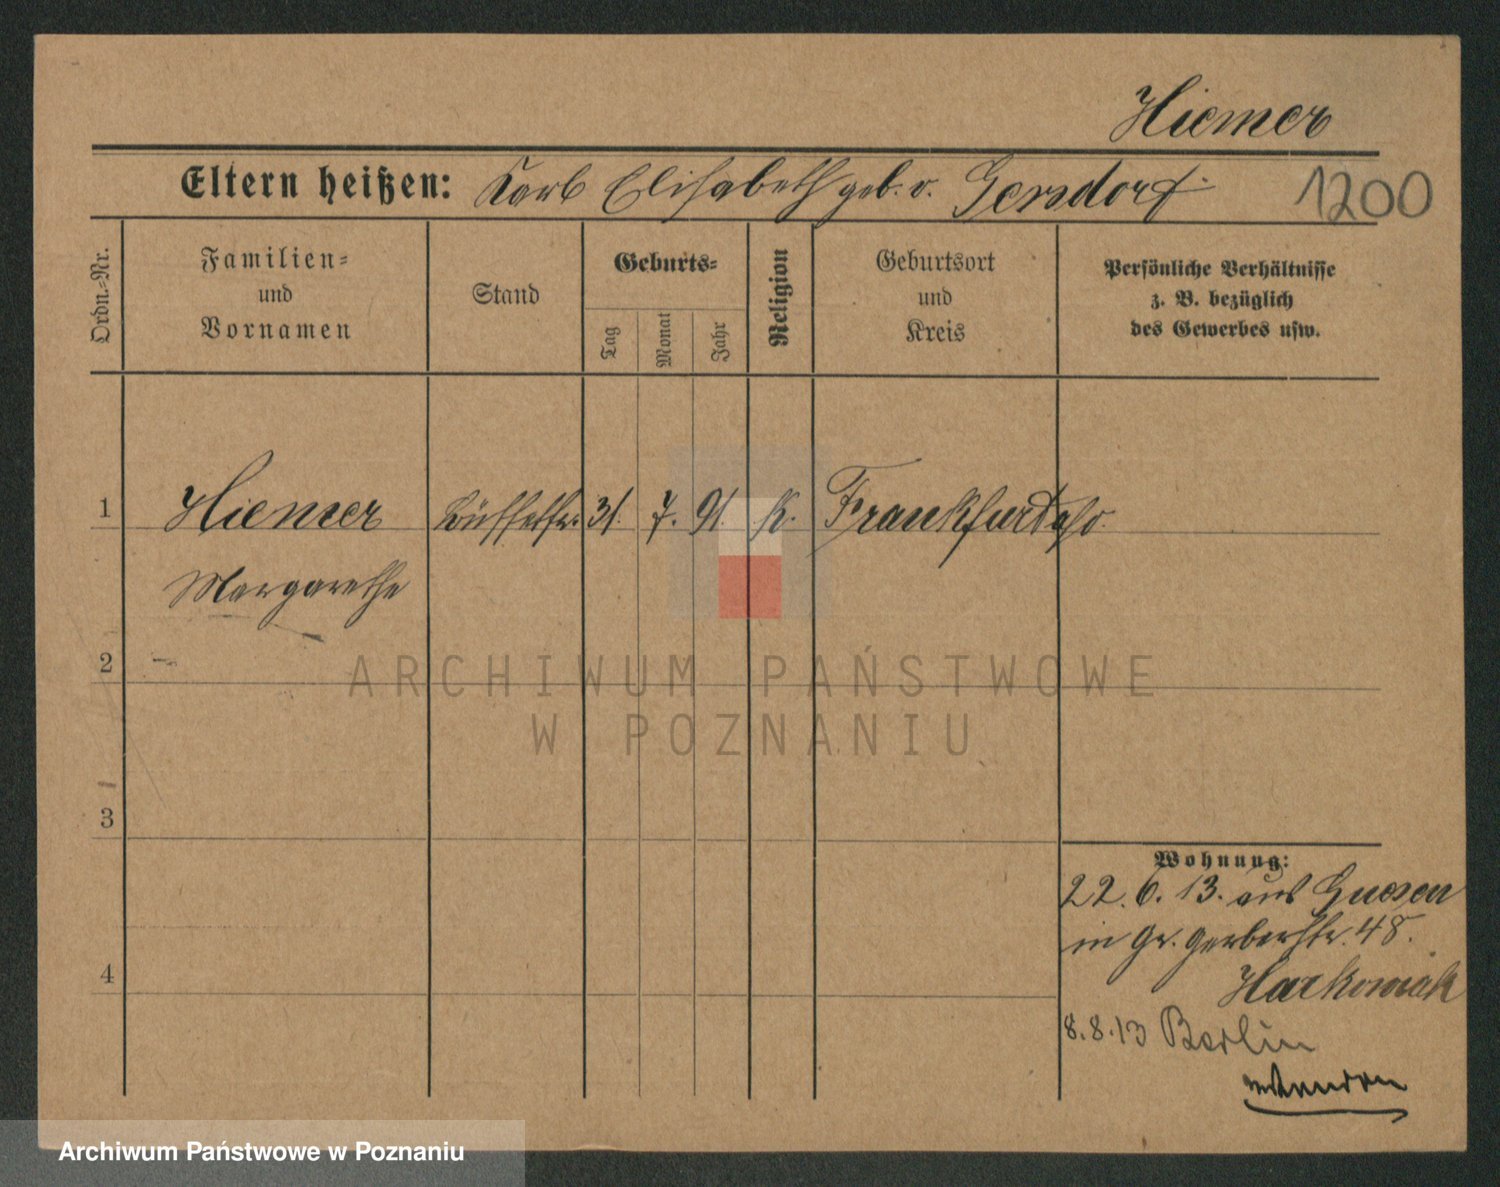 Hiemer
Eltern heißen: Karl Elisabeth geb. v. Gersdorf 1200
Ordn.-Nr.
Familien-
und
Vornamen
Stand
Geburts-
Tag
Monat
Jahr
Religion
Geburtsort
und
Kreis
Persönliche Verhältnisse
z. B. bezüglich
des Gewerbes usw.
1 Hiemer Büffetfr. 31. 7. 91. K. Frankfurt a/O.
Margarethe
2
ARCHIWUM PAŃSTWOWE
W POZNANIU
3
Wohnung:
22. 6. 13. aus Gnesen
in Gr. Gerberstr. 48.
Harkowiak
4
8.8.13 Berlin
Archiwum Państwowe w Poznaniu